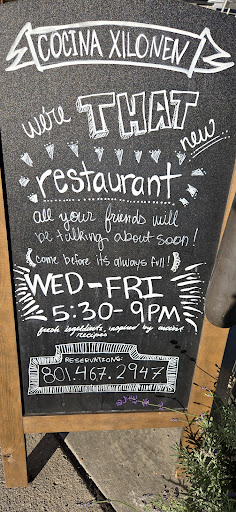 COCINA XILONEN
we're THAT
new
restaurant
all your friends will
be talking about soon!
(come before its always full!)
WED-FRI
5:30-9PM
fresh ingredients, inspired by ancient
recipes
RESERVATIONS:
801.467.2947